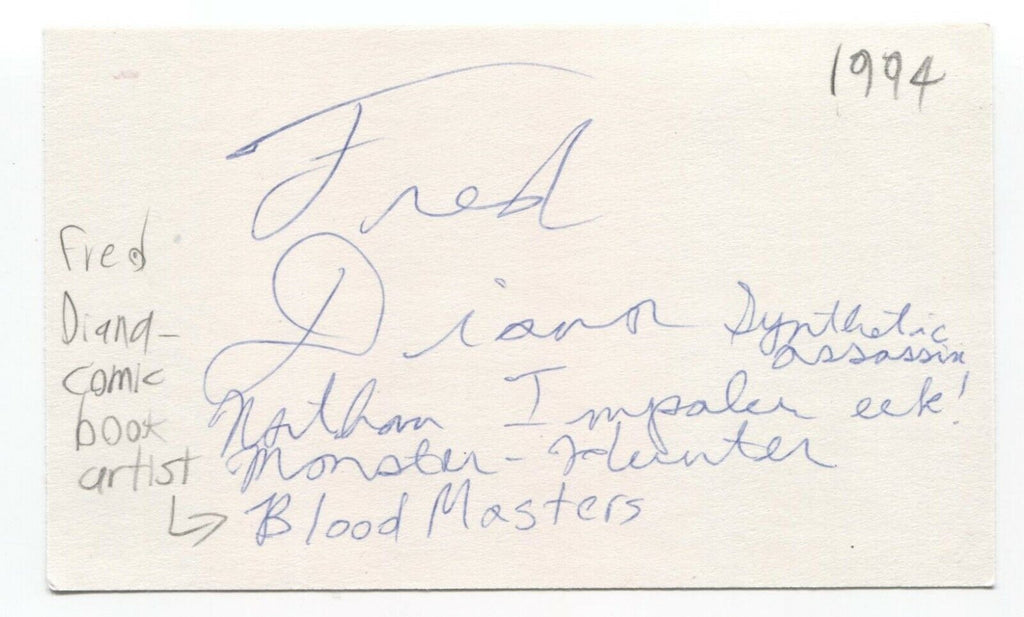 1994
Fred
Diana
Synthetic
assassin
Nathan Impaler eek!
Monster-Hunter
Blood Masters
Fred
Diana-
comic
book
artist